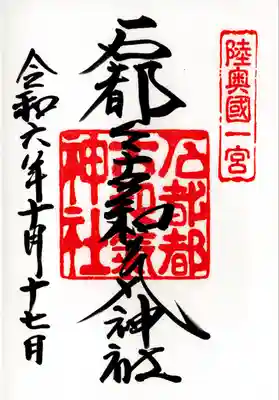 陸奥國一宮
石都々古和气神社
石都都
古和氣
神社
令和六年十月十七日